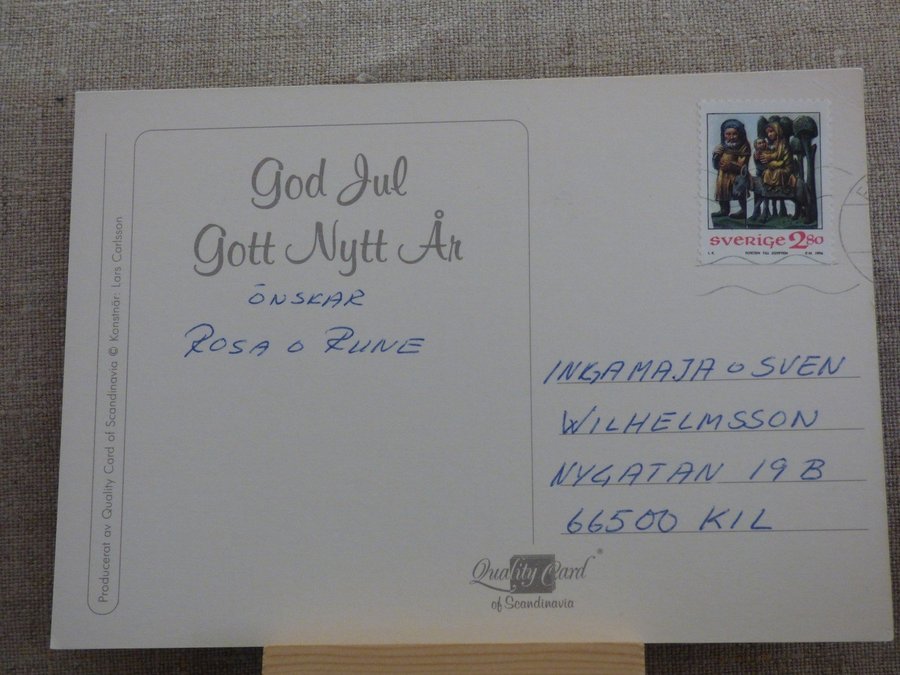 God Jul
Gott Nytt År
ÖNSKAR
ROSA O RUNE
Producerat av Quality Card of Scandinavia © Konstnär: Lars Carlsson
SVERIGE 2.80
INGAMAJA o SVEN
WILHELMSSON
NYGATAN 19 B
66500 KIL
Quality Card ®
of Scandinavia